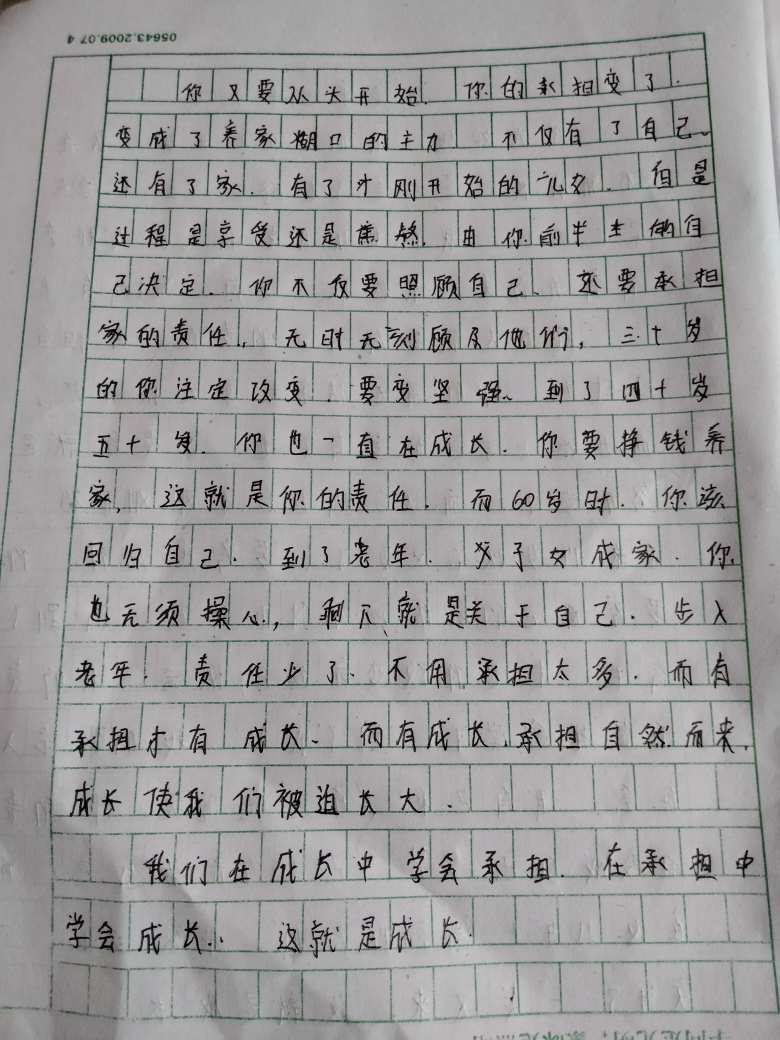 05643.2009.07 4
你又要从头开始. 你的承担变了.
变成了养家糊口的主力 不仅有了自己、
还有了家. 有了才刚开始的儿女. 但是
过程是享受还是焦熬. 由你前半生的自
己决定. 你不仅要照顾自己、还要承担
家的责任, 无时无刻顾及他们, 三十岁
的你注定改变. 要变坚强、到了四十岁
五十岁. 你也一直在成长. 你要挣钱养
家, 这就是你的责任. 而60岁时. 你该
回归自己. 到了老年. 子女成家. 你
也无须操心, 剩下就是关于自己. 步入
老年. 责任少了. 不用承担太多. 而有
承担才有成长、而有成长,承担自然而来.
成长使我们被迫长大.
我们在成长中学会承担. 在承担中
学会成长. 这就是成长.